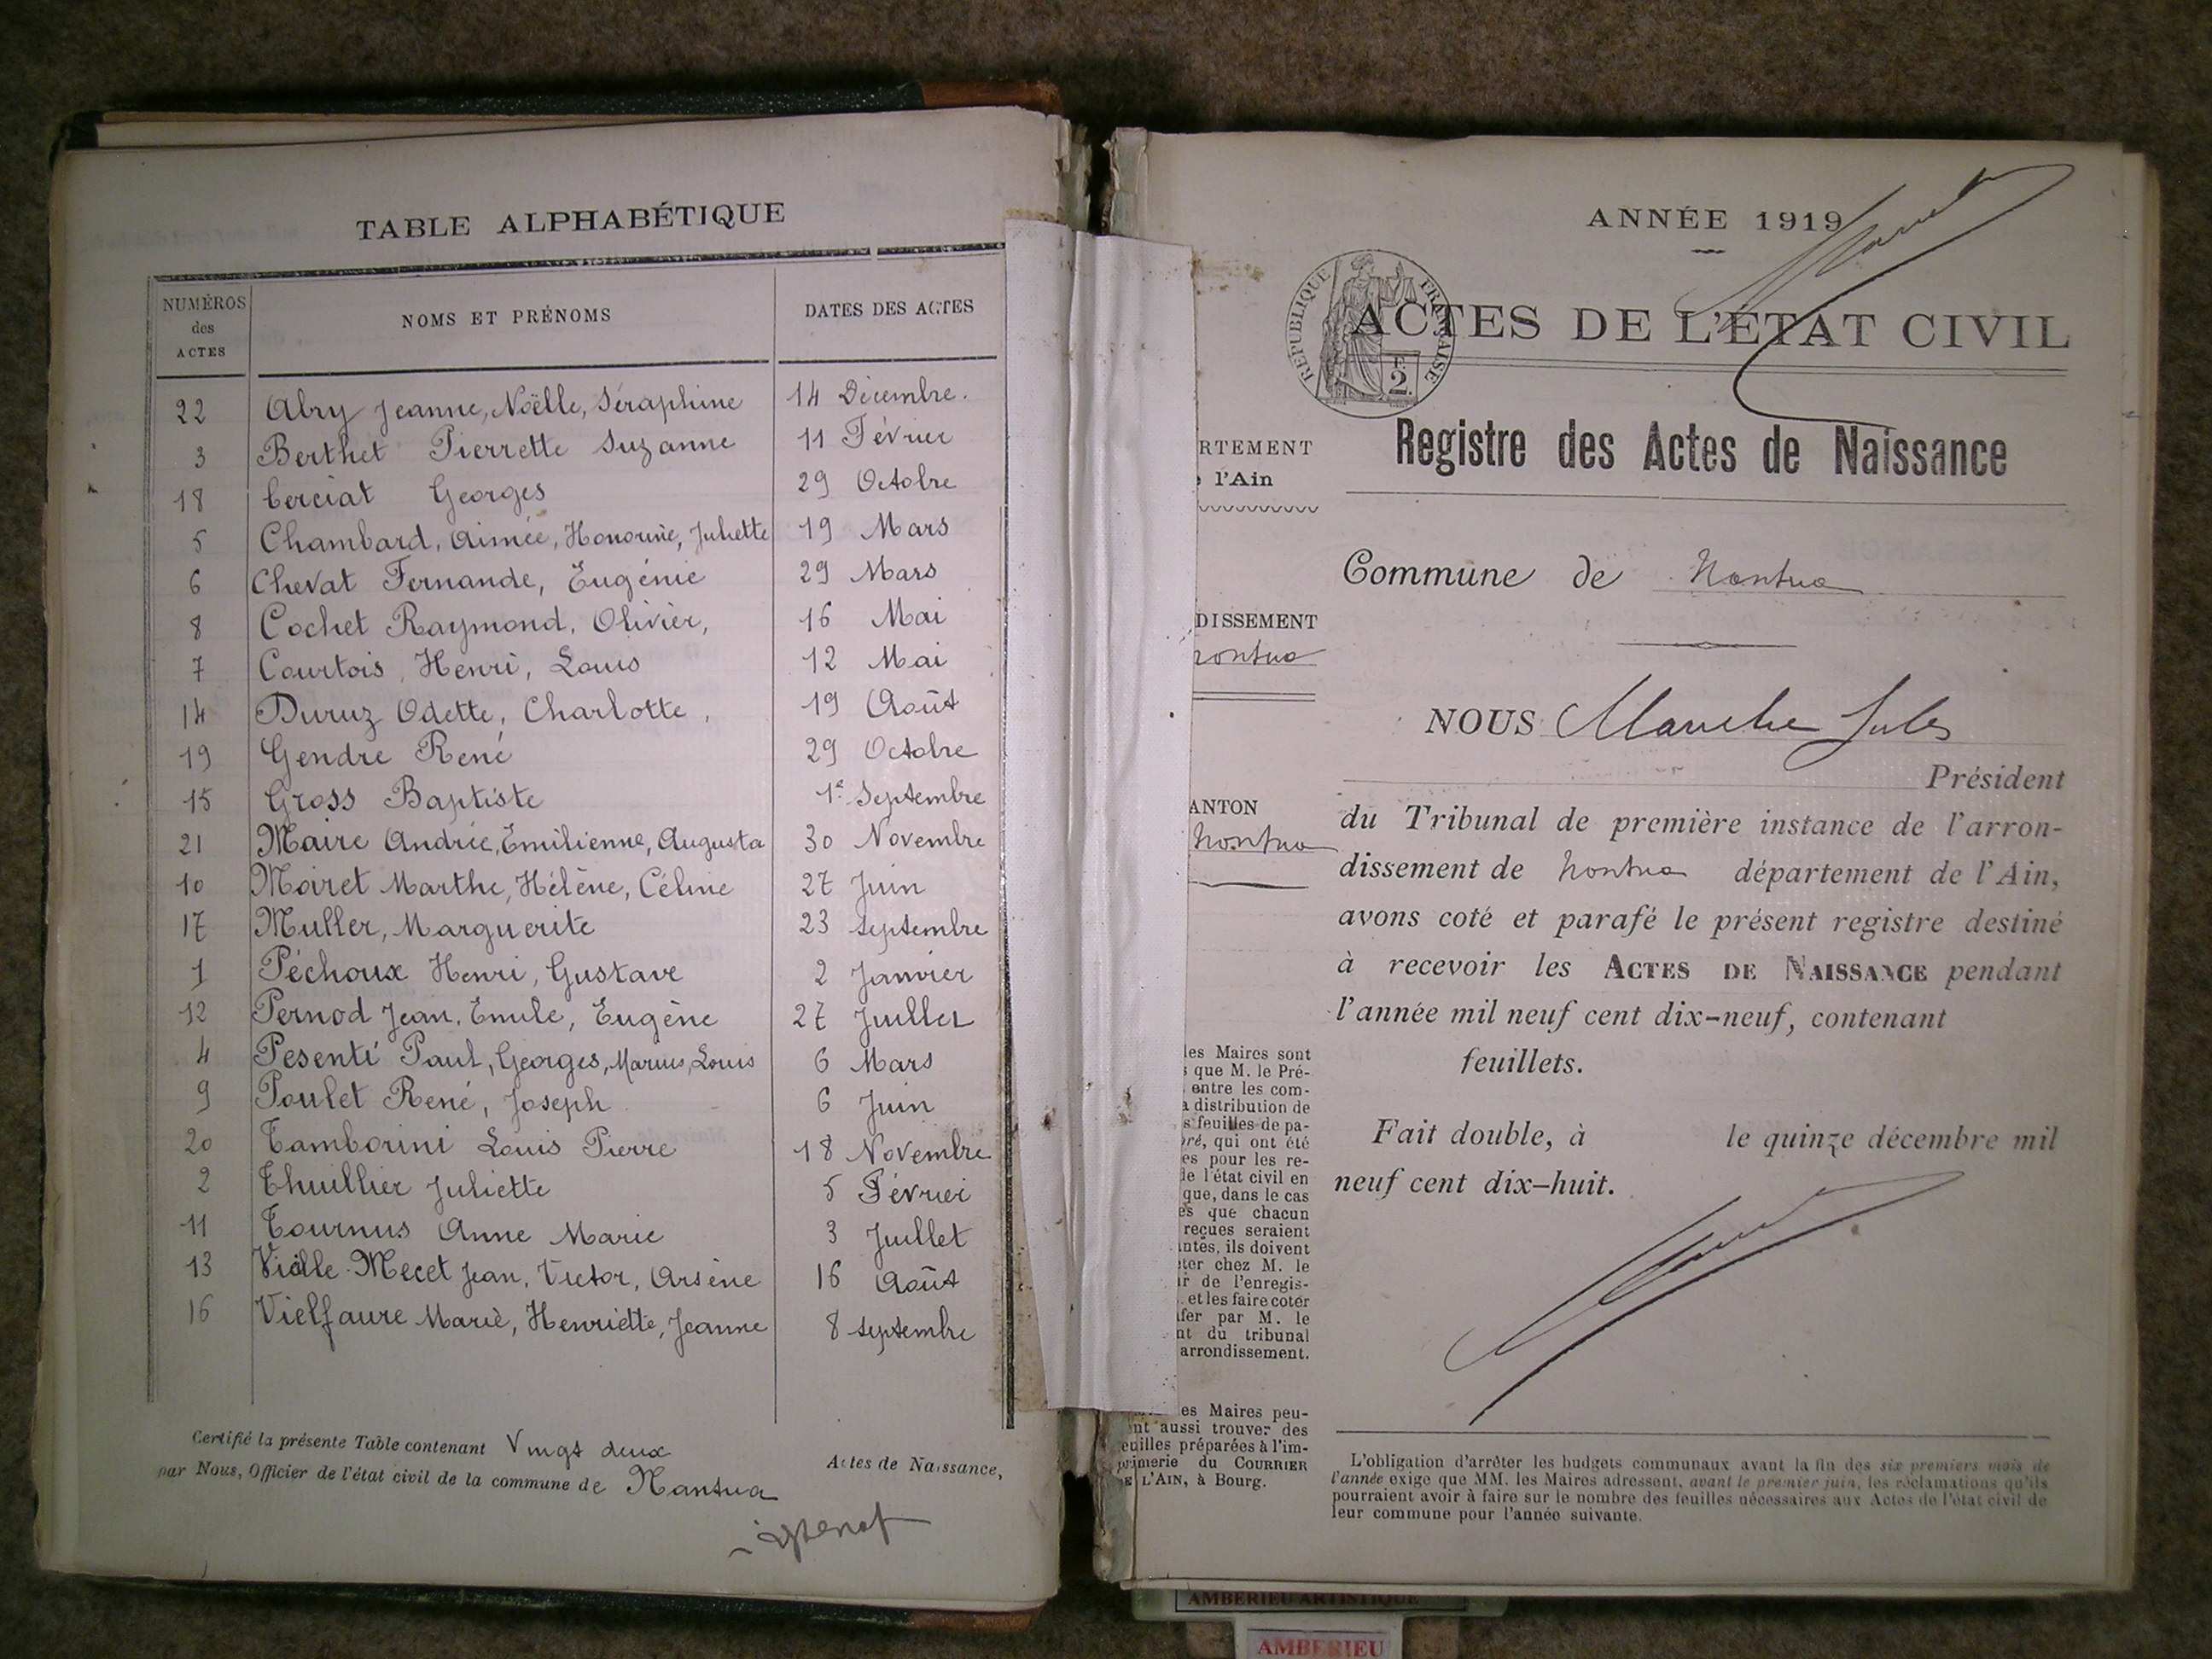 TABLE ALPHABÉTIQUE
NUMÉROS des ACTES NOMS ET PRÉNOMS DATES DES ACTES
22 Abry Jeanne, Noëlle, Séraphine 14 Décembre.
3 Berthet Pierrette Suzanne 11 Février
18 Cerciat Georges 29 Octobre
5 Chambard, Aimée, Honorine, Juliette 19 Mars
6 Chevat Fernande, Eugénie 29 Mars
8 Cochet Raymond, Olivier, 16 Mai
7 Courtois, Henri, Louis 12 Mai
14 Duruz Odette, Charlotte, 19 Août
19 Gendre René 29 Octobre
15 Gross Baptiste 1er Septembre
21 Maire Andrée, Emilienne, Augusta 30 Novembre
10 Moiret Marthe, Hélène, Céline 27 Juin
17 Muller, Marguerite 23 septembre
1 Péchoux Henri, Gustave 2 Janvier
12 Pernod Jean, Emile, Eugène 27 Juillet
4 Pesenti Paul, Georges, Marius, Louis 6 Mars
9 Poulet René, Joseph 6 Juin
20 Tamborini Louis Pierre 18 Novembre
2 Thuillier Juliette 5 Février
11 Tournus Anne Marie 3 Juillet
13 Vialle-Mecet Jean, Victor, Arsène 16 Août
16 Vielfaure Marie, Henriette, Jeanne 8 septembre
Certifié la présente Table contenant Vingt deux Actes de Naissance,
par Nous, Officier de l'état civil de la commune de Nantua
ANNÉE 1919
RÉPUBLIQUE FRANÇAISE
F. 2.
ACTES DE L'ÉTAT CIVIL
Registre des Actes de Naissance
RTEMENT
l'Ain
Commune de Nantua
DISSEMENT
NOUS Jules
Président
du Tribunal de première instance de l'arron-
ANTON
Nantua
dissement de Nantua département de l'Ain,
avons coté et parafé le présent registre destiné
à recevoir les ACTES DE NAISSANCE pendant
l'année mil neuf cent dix-neuf, contenant
feuillets.
Fait double, à le quinze décembre mil
neuf cent dix-huit.
les Maires sont
que M. le Pré-
entre les com-
distribution de
feuilles de pa-
qui ont été
pour les re-
l'état civil en
que, dans le cas
que chacun
reçues seraient
ils doivent
chez M. le
de l'enregis-
et les faire coter
par M. le
du tribunal
arrondissement.
es Maires peu-
aussi trouver des
euilles préparées à l'im-
primerie du COURRIER
L'AIN, à Bourg.
L'obligation d'arrêter les budgets communaux avant la fin des six premiers mois de
l'année exige que MM. les Maires adressent, avant le premier juin, les réclamations qu'ils
pourraient avoir à faire sur le nombre des feuilles nécessaires aux Actes de l'état civil de
leur commune pour l'année suivante.
AMBERIEU ARTISTIQUE
AMBERIEU